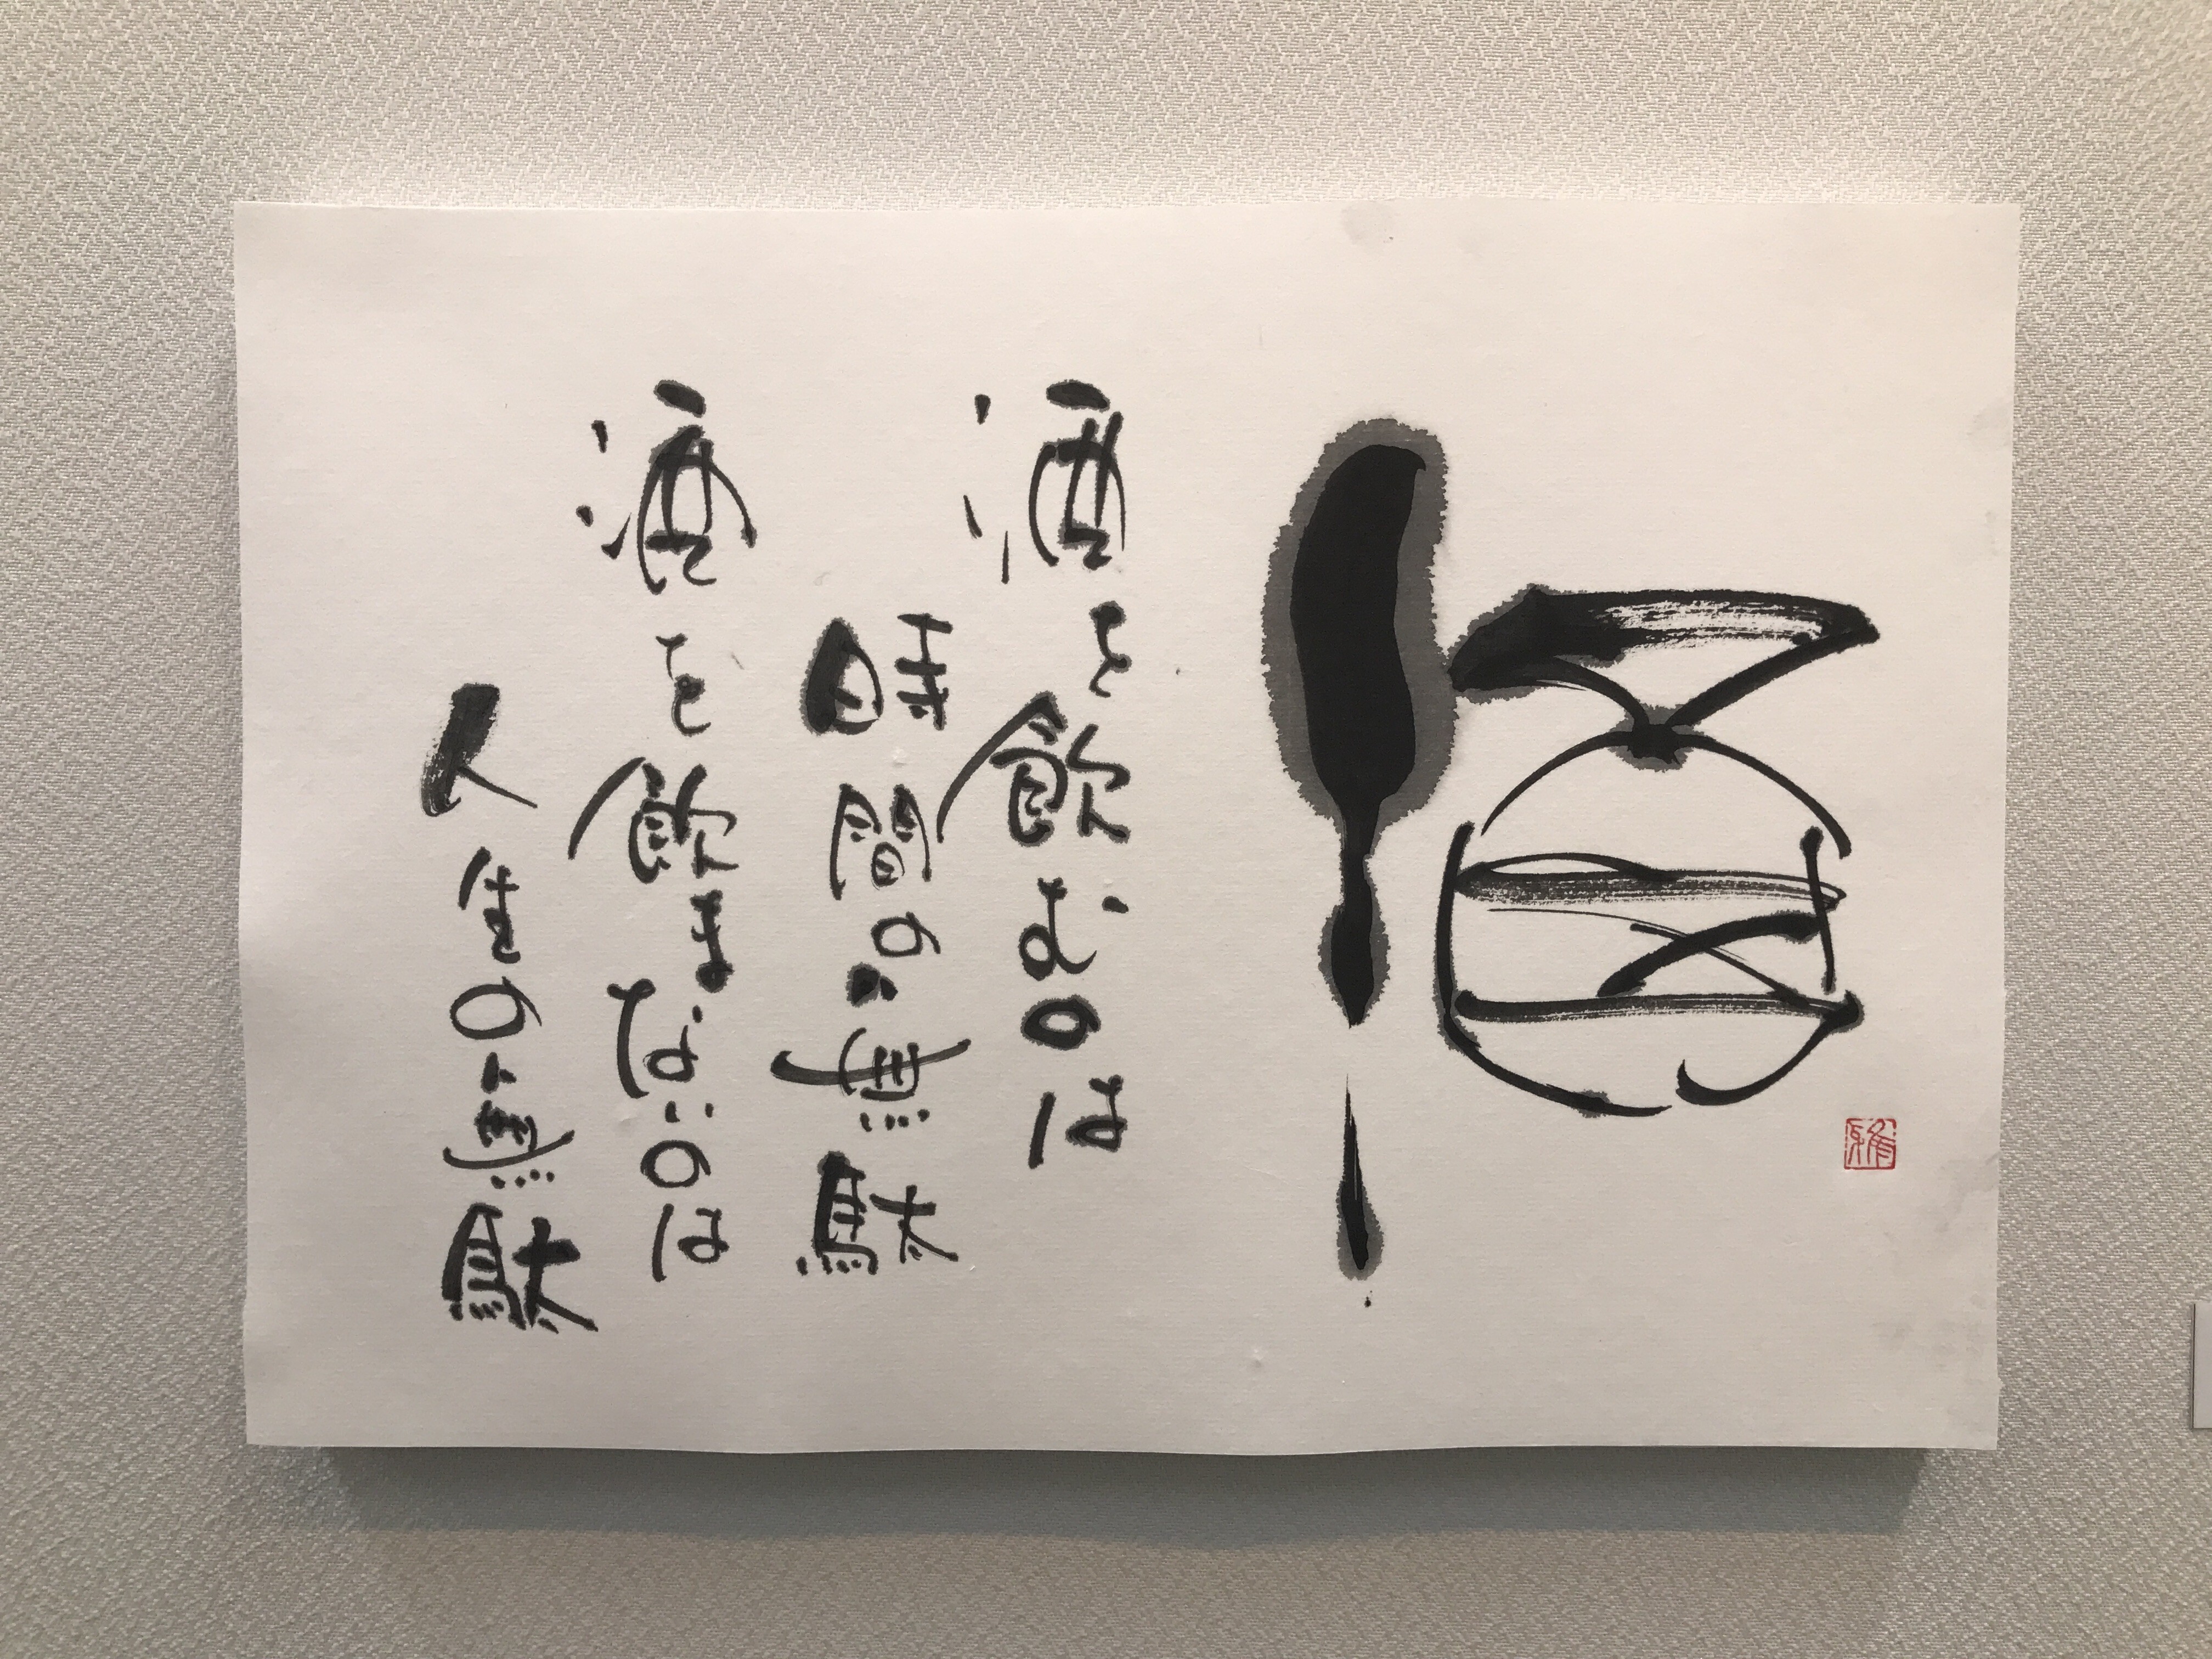 酒
酒を飲むのは
時間の無駄
酒を飲まないのは
人生の無駄
雅